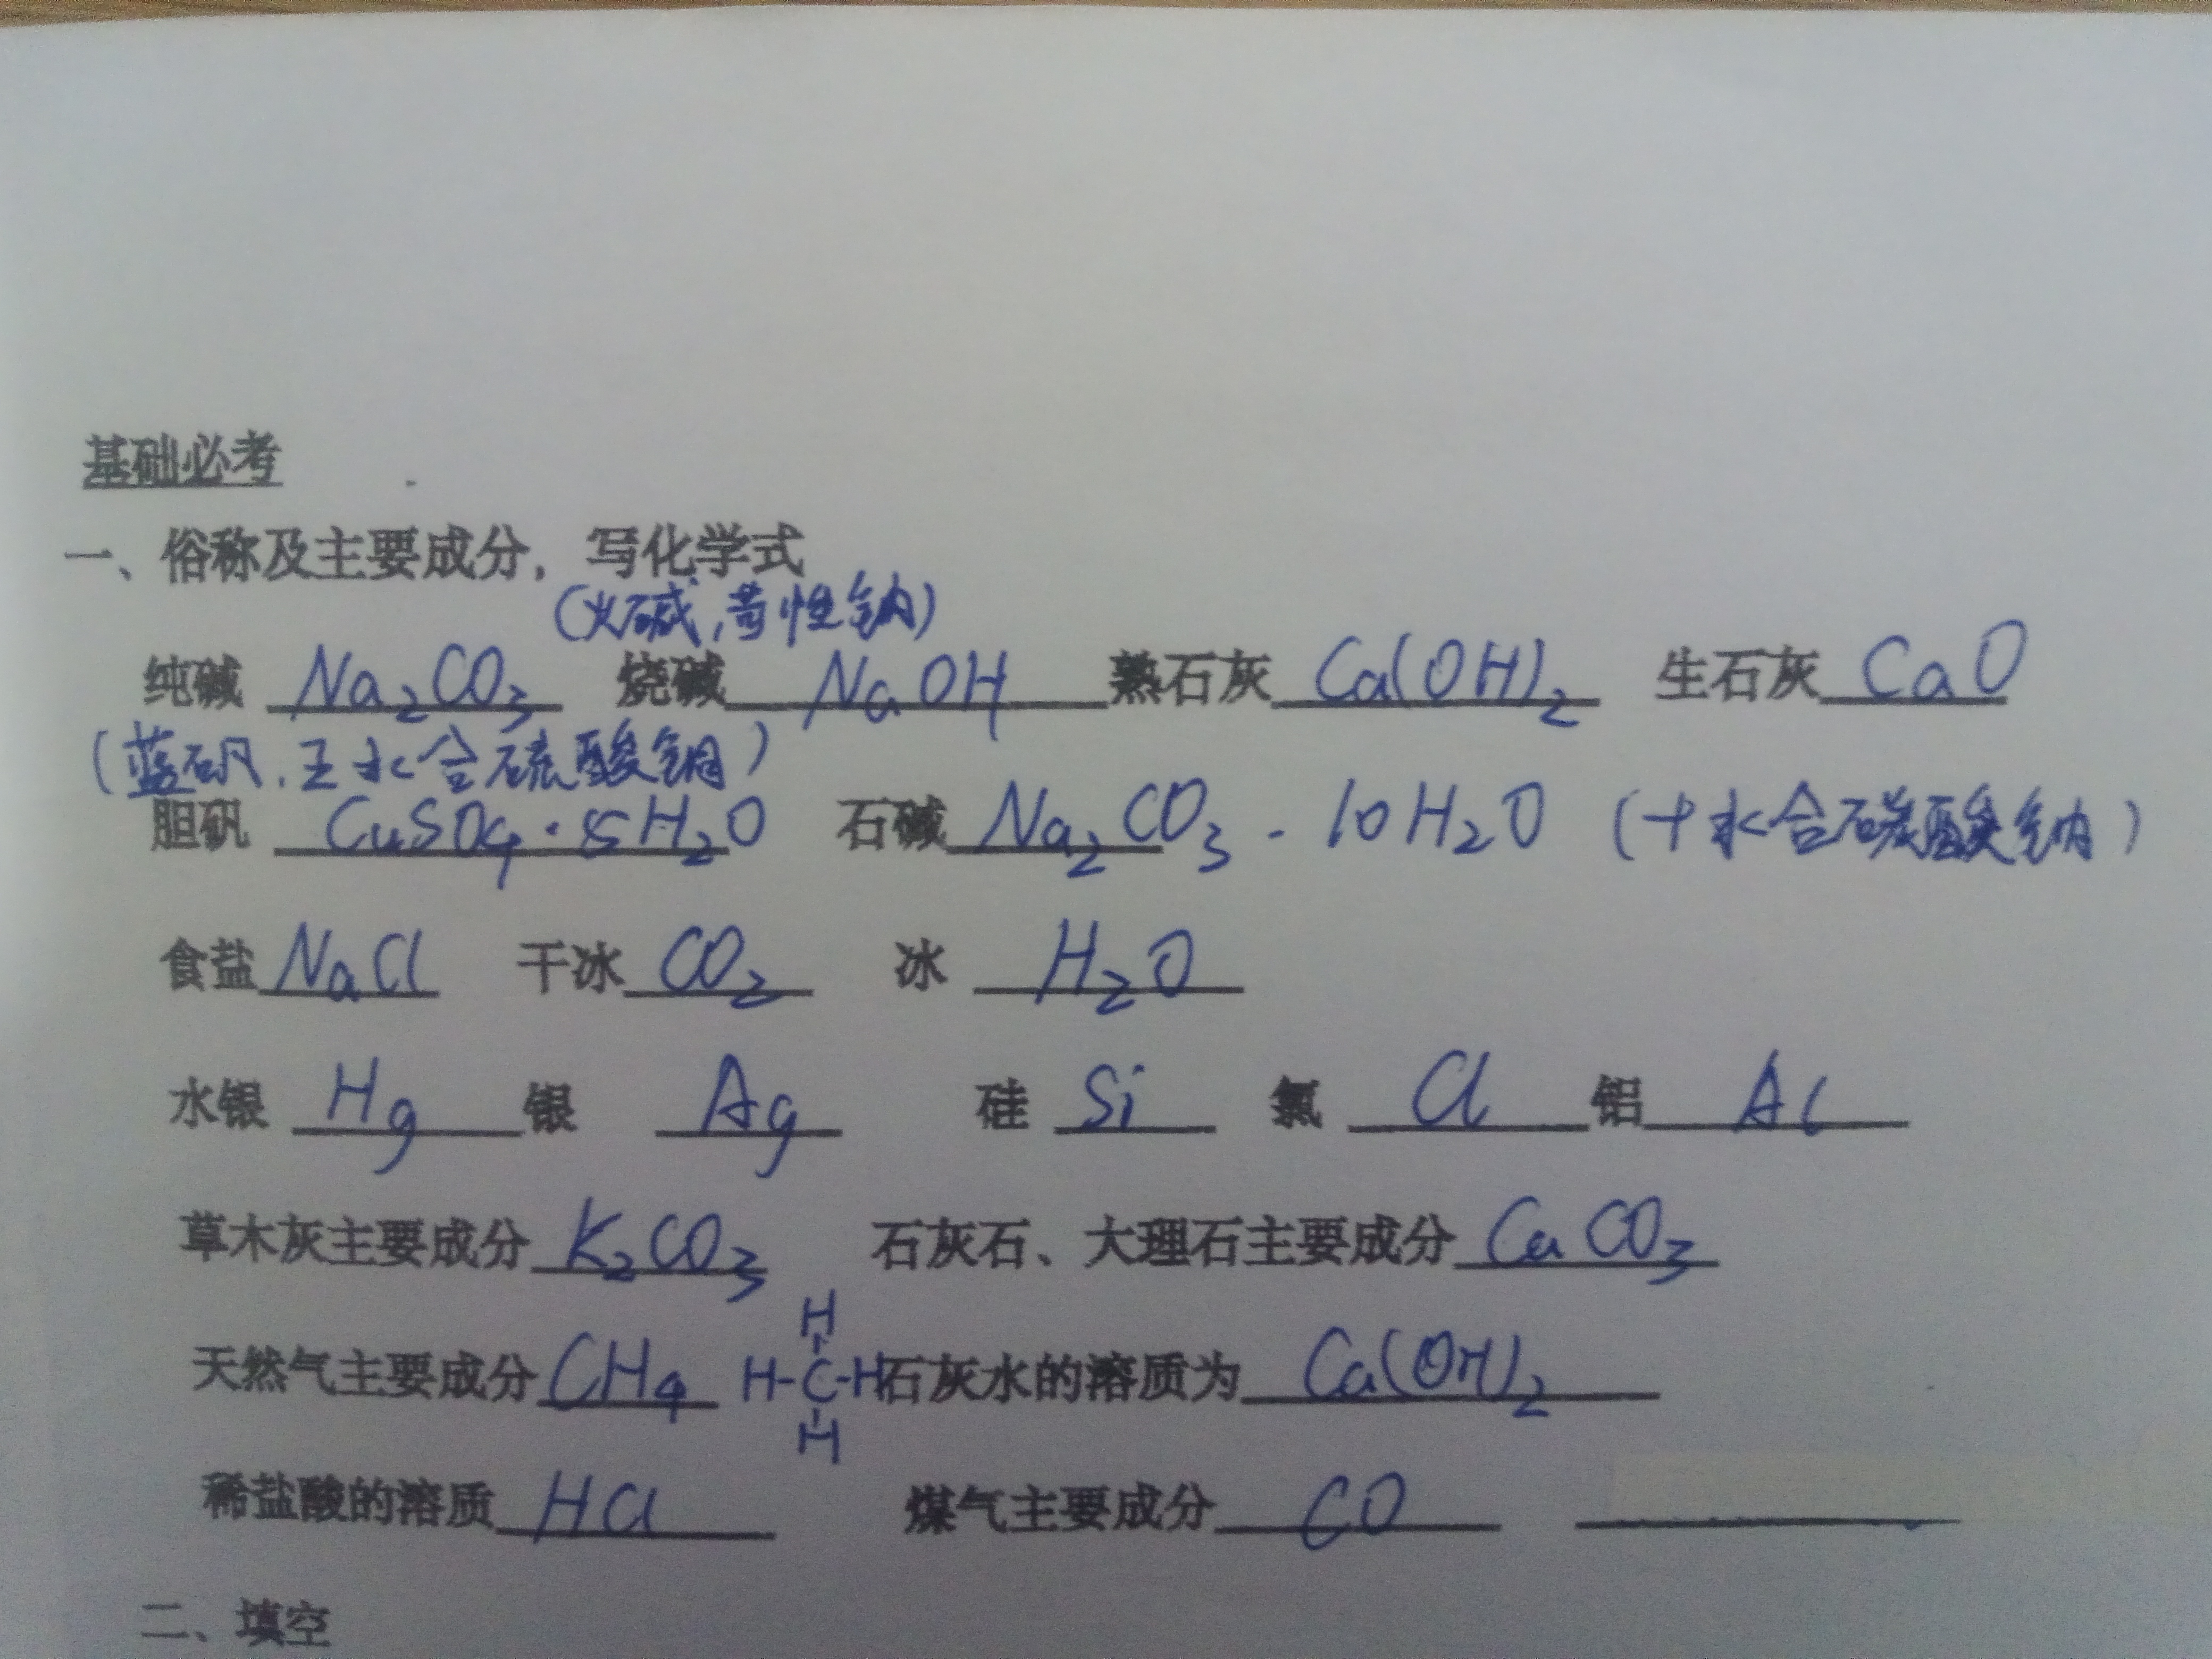 基础必考
一、俗称及主要成分，写化学式
(火碱,苛性钠)
纯碱 Na₂CO₃ 烧碱 NaOH 熟石灰 Ca(OH)₂ 生石灰 CaO
(蓝矾.五水合硫酸铜)
胆矾 CuSO₄·5H₂O 石碱 Na₂CO₃·10H₂O (十水合碳酸钠)
食盐 NaCl 干冰 CO₂ 冰 H₂O
水银 Hg 银 Ag 硅 Si 氯 Cl 铝 Al
草木灰主要成分 K₂CO₃ 石灰石、大理石主要成分 CaCO₃
H
天然气主要成分 CH₄ H-C-H 石灰水的溶质为 Ca(OH)₂
H
稀盐酸的溶质 HCl 煤气主要成分 CO
二、填空